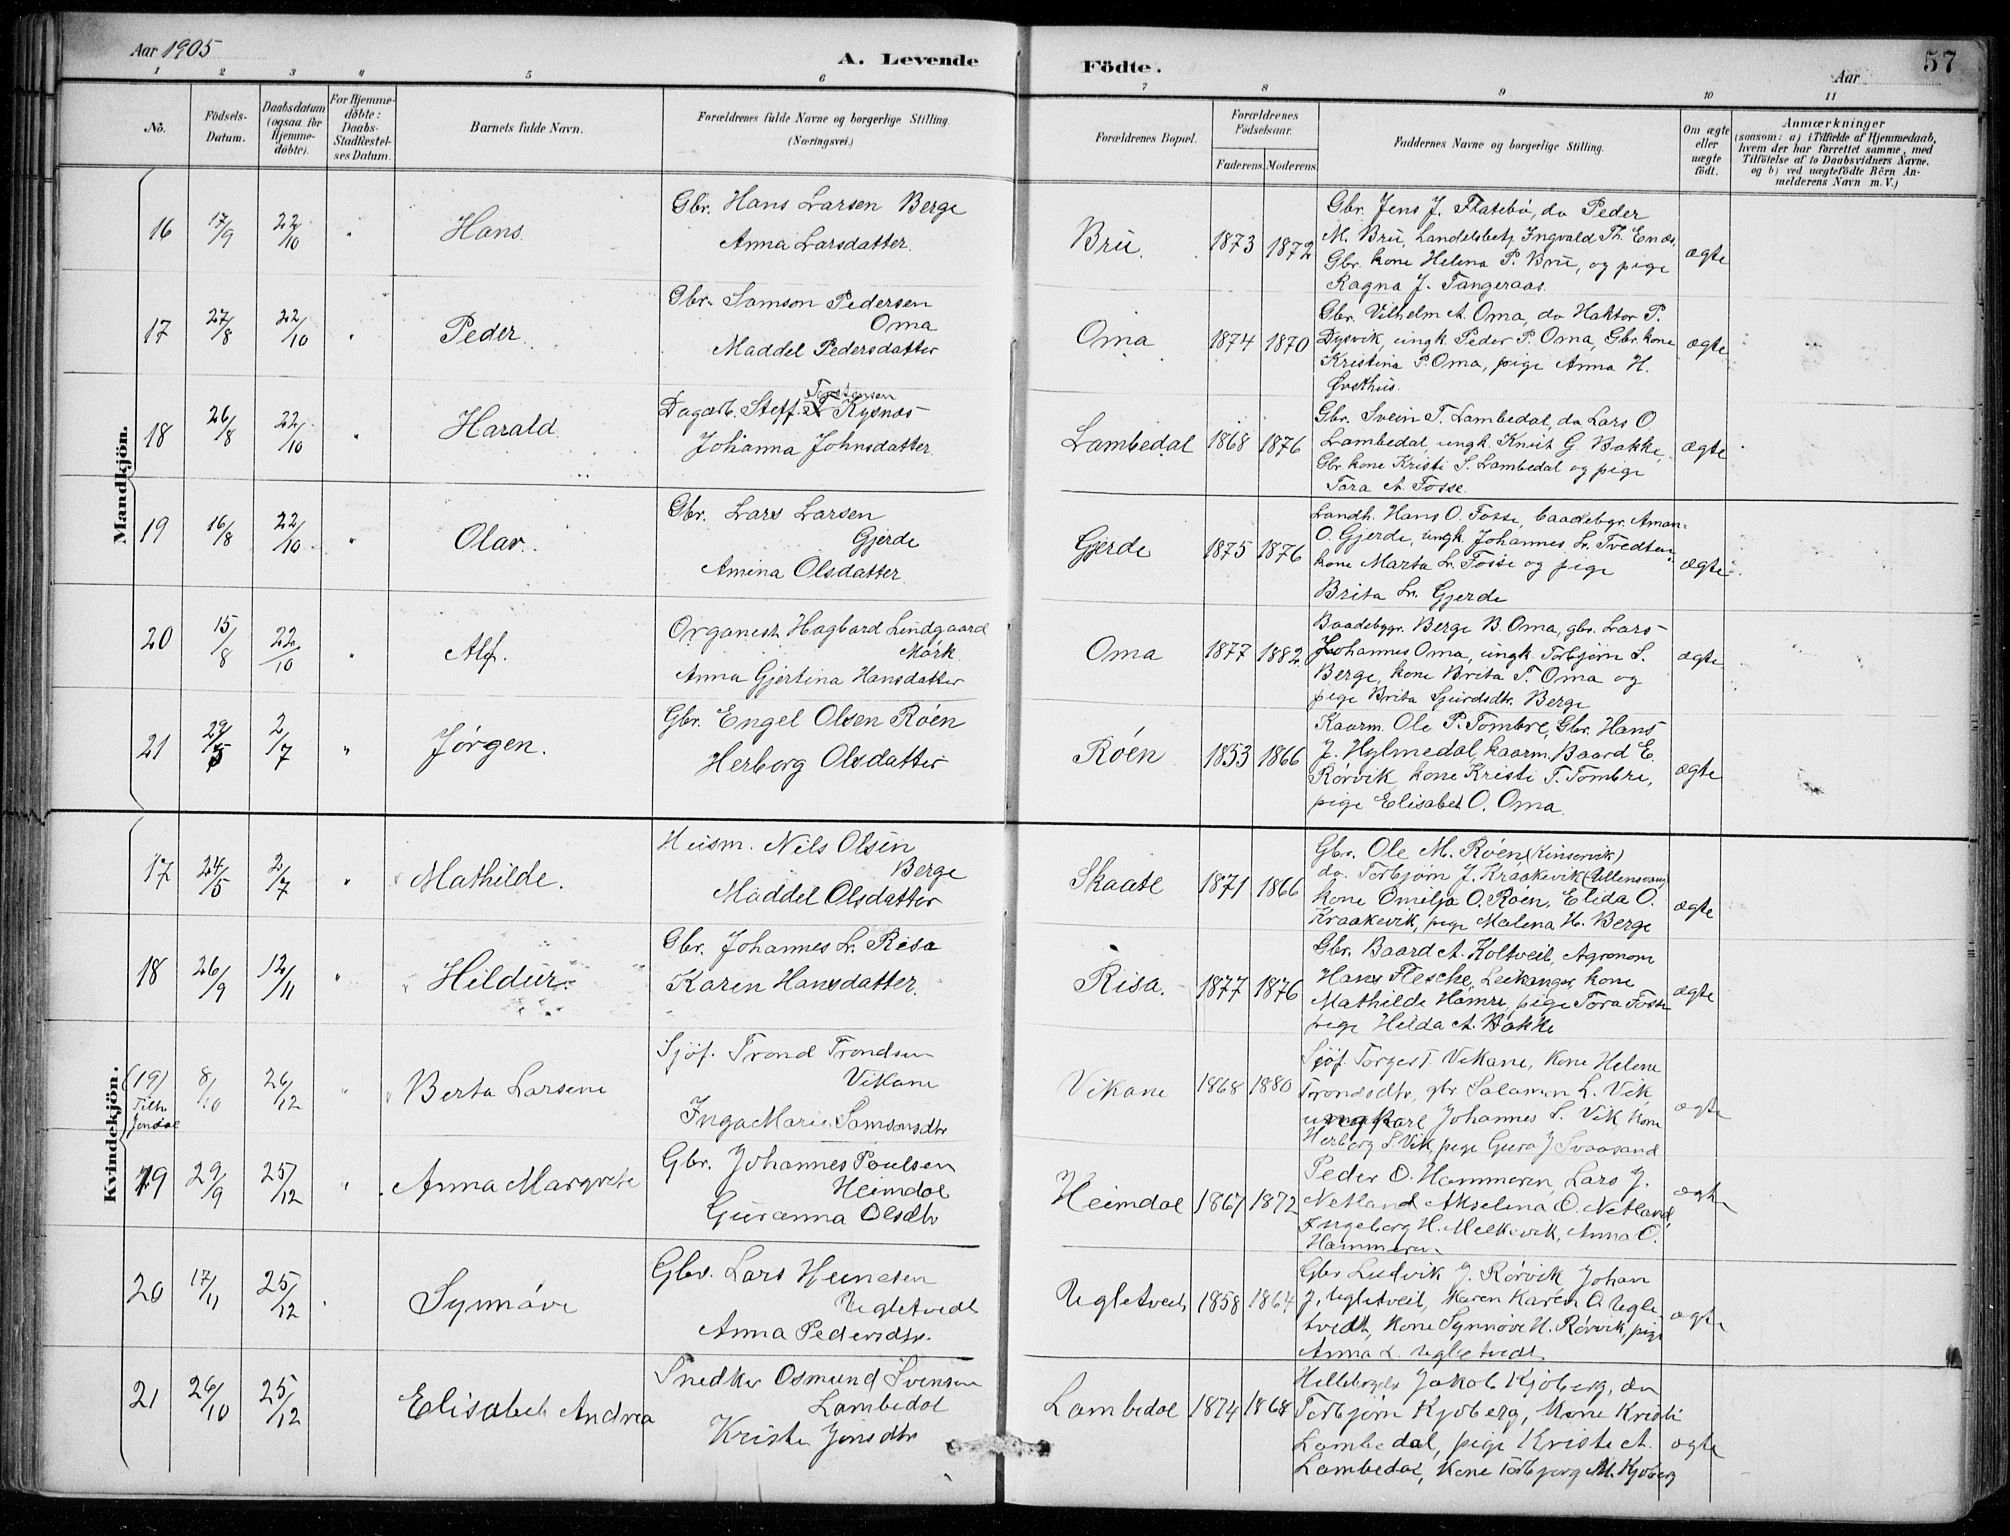 Aar 1905
A. Levende
Födte.
Aar
57
1 2 3 4 5 6 7 8 9 10 11
No.
Födsels-
Datum.
Daabsdatum
(ogsaa for
Hjemme-
döbte).
For Hjemme-
döbte:
Daabs-
Stadfæstel-
ses Datum.
Barnets fulde Navn.
Forældrenes fulde Navne og borgerlige Stilling.
(Næringsvei.)
Forældrenes Bopæl.
Forældrenes
Födselsaar.
Faderens. Moderens.
Faddernes Navne og borgerlige Stilling.
Om ægte
eller
uægte
födt.
Anmærkninger
(saasom: a) i Tilfælde af Hjemmedaab,
hvem der har forrettet samme, med
Tilföielse af to Daabsvidners Navne,
og b) ved uægtefödte Börn An-
melderens Navn m. V.)
Mandkjön.
16 17/9 22/10 " Hans
Gbr. Hans Larsen Berge
Anna Larsdatter
Bru. 1873 1872
Gbr. Jens J. Flatebø, do Peder
M. Bru, Landelsbetj. Ingvald Th. Enæs,
Gbr. kone Helena P. Bru, og pige
Ragna J. Tangeraas.
ægte
17 27/8 22/10 " Peder
Gbr. Samson Pedersen
Oma
Maddel Pedersdatter
Oma 1874 1870
Gbr. Vilhelm A. Oma, do Haktor P.
Dysvik, ungk. Peder P. Oma, Gbr. kone
Kristina P. Oma, pige Anna H.
Øvsthus.
ægte
18 26/8 22/10 " Harald
Torstensen
Dagarb. Steff. T. Kysnæs
Johanna Johnsdatter
Lambedal 1868 1876
Gbr. Svein T. Lambedal, do Lars O.
Lambedal, ungk. Knut G. Bakke,
Gbr. kone Kristi S. Lambedal og pige
Tora A. Fosse.
ægte
19 16/8 22/10 " Olav.
Gbr. Lars Larsen
Gjerde
Amina Olsdatter
Gjerde 1875 1876
Landh. Hans O. Fosse, baadebgr. Aman-
O. Gjerde, ungk. Johannes L. Tvedten,
kone Marta L. Fosse og pige
Brita L. Gjerde
ægte
20 15/8 22/10 " Alf.
Organist Hagbard Lindgaard
Mørk
Anna Gjertina Hansdatter
Oma 1877 1882
Baadebygr. Berge B. Oma, gbr. Lars
Johannes Oma, ungk. Torbjørn S.
Berge, kone Brita T. Oma og
pige Brita Sjursdtr. Berge
ægte
21 29/5 2/7 " Jørgen.
Gbr. Engel Olsen Røen
Herborg Olsdatter
Røen 1853 1866
Kaarm. Ole P. Tombre, Gbr. Hans
J. Hylmedal, kaarm. Baard E.
Rørvik, kone Kristi T. Tombre,
pige Elisabet O. Oma.
ægte
Kvindekjön.
17 24/5 2/7 " Mathilde.
Husm. Nils Olsen
Berge
Maddel Olsdatter
Skaate 1871 1866
Gbr. Ole M. Røen (Kinservik)
do. Torbjørn J. Kraakevik (Ullensvang)
kone Omilja O. Røen, Elida O.
Kraakevik, pige Malena H. Berge
ægte
18 26/9 12/11 " Hildur.
Gbr. Johannes L. Risa
Karen Hansdatter.
Risa. 1877 1876
Gbr. Baard A. Koltveit, Agronom
Hans Flesche, Leikanger, kone
Mathilde Hamre, pige Tora Fosse
pige Hilda A. Bakke
ægte
(19)
Tilh.
Jondal
8/10 26/12 " Berta Larsine
Sjöf. Trond Trondsen
Vikane
Inga Marie Samsonsdtr
Vikane 1868 1880
Sjöf. Torgest. Vikane, Kone Helene
Trondsdtr, gbr Salamon L. Vik,
ungkarl Johannes S. Vik, Kone
Herborg S. Vik, pige Guro J Svaasand
ægte
19 29/9 25/12 " Anna Margrete
Gbr. Johannes Poulsen
Heimdal
Guranna Olsdtr
Heimdal 1867 1872
Peder O. Hammeren, Lars J.
Netland, Akselina O. Netland,
Ingeborg H. Melkevik, Anna O.
Hammeren
ægte
20 17/11 25/12 Synnøve
Gbr. Lars
Ugletvedt
Anna Pedersdtr.
Ugletveit 1858 1864
Gbr Ludvik J. Rørvik, Johan
J. Ugletveit, Karen Karen O. Ugle
tvedt, Kone Synnove H. Rørvik, pige
Anna L. Ugletvedt
ægte
21 26/10 25/12 Elisabet Andrea
Snedker Osmund Svensen
Lambedal
Kriste Jensdtr
Lambedal 1874 1868
Jakob Kjøberg, do
Torbjørn Kjøberg, Kone Kristi
Lambedal, pige Kriste A.
Lambedal, Kone Torbjorg M. Kjøberg
ægte